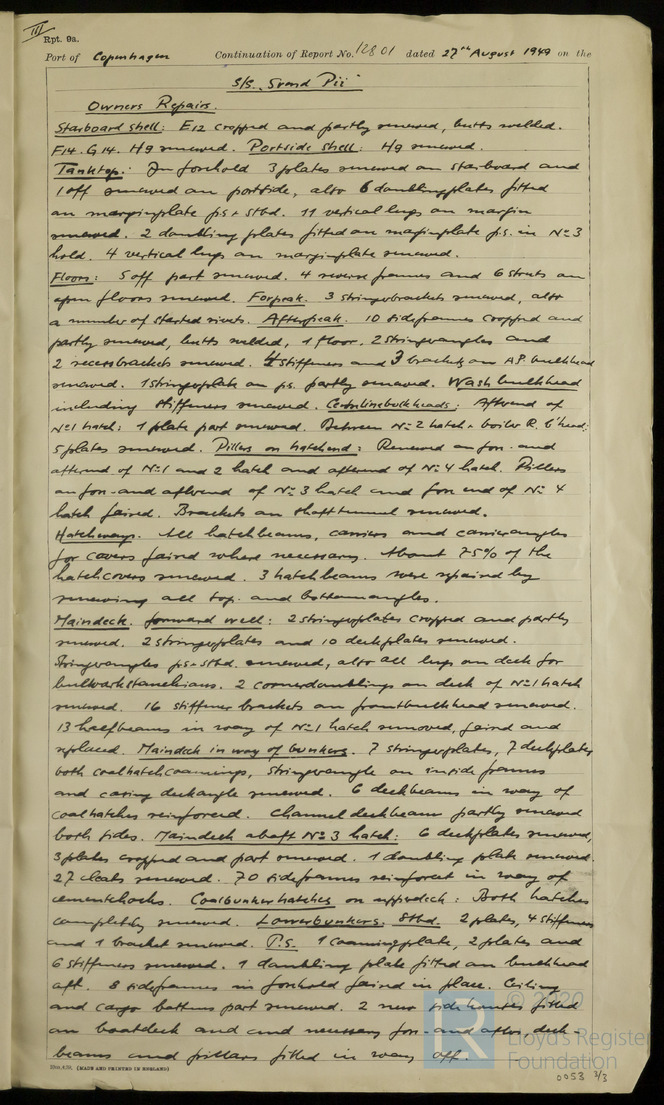 III
Rpt. 9a.
Port of Copenhagen Continuation of Report No. 12801 dated 27th August 1949 on the
S/S. "Svend Pii"
Owners Repairs.
Starboard shell: E12 cropped and partly renewed, butts welded.
F14. G14. H9 renewed. Portside shell: H9 renewed.
Tanktop: In forehold 3 plates renewed on starboard and
1 off renewed on portside, also 6 doublingplates fitted
on marginplate ps & stbd. 11 vertical lugs on margin
renewed. 2 doubling plates fitted on marginplate p.s. in No 3
hold. 4 vertical lugs on marginplate renewed.
Floors: 5 off part renewed. 4 reverse frames and 6 struts on
open floors renewed. Forpeak. 3 stringerbrackets renewed, also
a number of started rivets. Afterpeak. 10 sideframes cropped and
partly renewed, butts welded, 1 floor. 2 stringerangles and
2 recessbrackets renewed. 4 stiffeners and 3 brackets on A.P. bulkhead
renewed. 1 stringerplate on ps. partly renewed. Wash bulkhead
including stiffeners renewed. Centrelinebulkheads: Aftend of
No 1 hatch: 1 plate part renewed. Between No 2 hatch & boiler R. b'head:
5 plates renewed. Pillars on hatchend: Renewed on for- and
aftend of No 1 and 2 hatch and aftend of No 4 hatch. Pillars
on for- and aftend of No 3 hatch and fore end of No 4
hatch faired. Brackets on shafttunnel renewed.
Hatchways. All hatchbeams, carriers and carrierangles
for covers faired where necessary. About 75% of the
hatchcovers renewed. 3 hatchbeams were repaired by
renewing all top- and bottomangles.
Maindeck. forward well: 2 stringerplates cropped and partly
renewed. 2 stringerplates and 10 deckplates renewed.
Stringerangles ps & stbd. renewed, also all lugs on deck for
bulwarkstanchions. 2 cornerdoublings on deck of No 1 hatch
renewed. 16 stiffener brackets on frontbulkhead renewed.
13 halfbeams in way of No 1 hatch removed, faired and
replaced. Maindeck in way of bunkers. 7 stringerplates, 7 deckplates
both coalhatchcoamings, stringerangle on inside frames
and casing deckangle renewed. 6 deckbeams in way of
coalhatches reinforced. Channel deckbeam partly renewed
both sides. Maindeck abaft No 3 hatch: 6 deckplates renewed,
3 plates cropped and part renewed. 1 doubling plate renewed.
27 cleats renewed. 70 sideframes reinforct in way of
cementchocks. Coalbunkerhatches on upperdeck: Both hatches
completely renewed. Lowerbunkers. Stbd. 2 plates, 4 stiffeners
and 1 bracket renewed. P.S. 1 coamingplate, 2 plates and
6 stiffeners renewed. 1 doubling plate fitted on bulkhead
aft. 8 sideframes in forehold faired in place. Ceiling
and cargo battens part renewed. 2 new fitted
on boatdeck and and necessary for- and after, deck-
beams and pillars fitted in way off.
(MADE AND PRINTED IN ENGLAND)
© 2020
Lloyd's Register
Foundation
0053 3/3